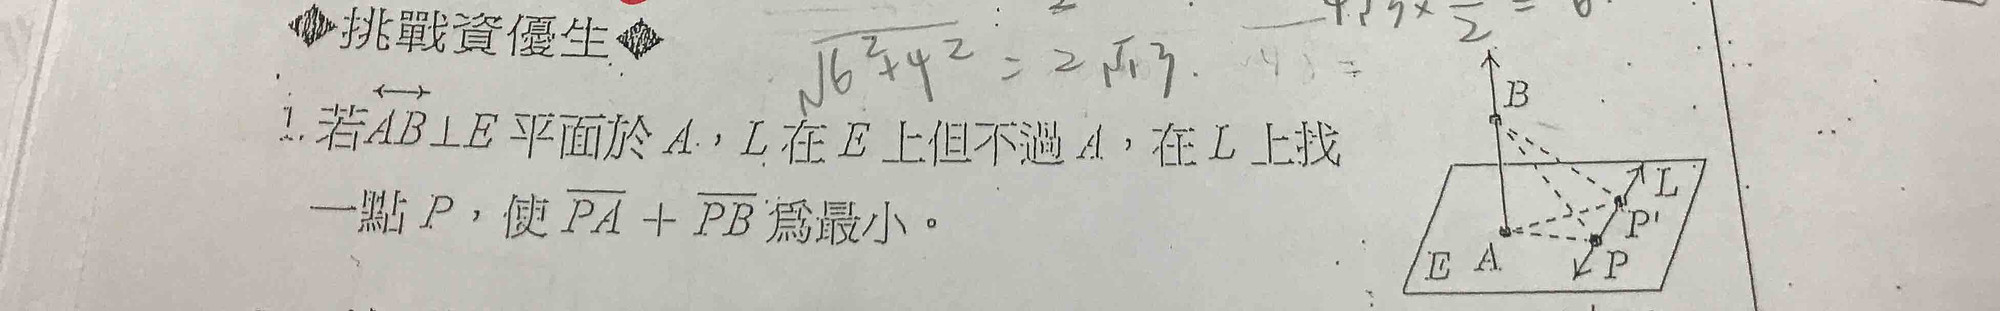 挑戰資優生
√6²+4² = 2√13.
1. 若AB⊥E 平面於 A，L 在 E 上但不過 A，在 L 上找
一點 P，使 PA + PB 為最小。
B
L
P'
E A P